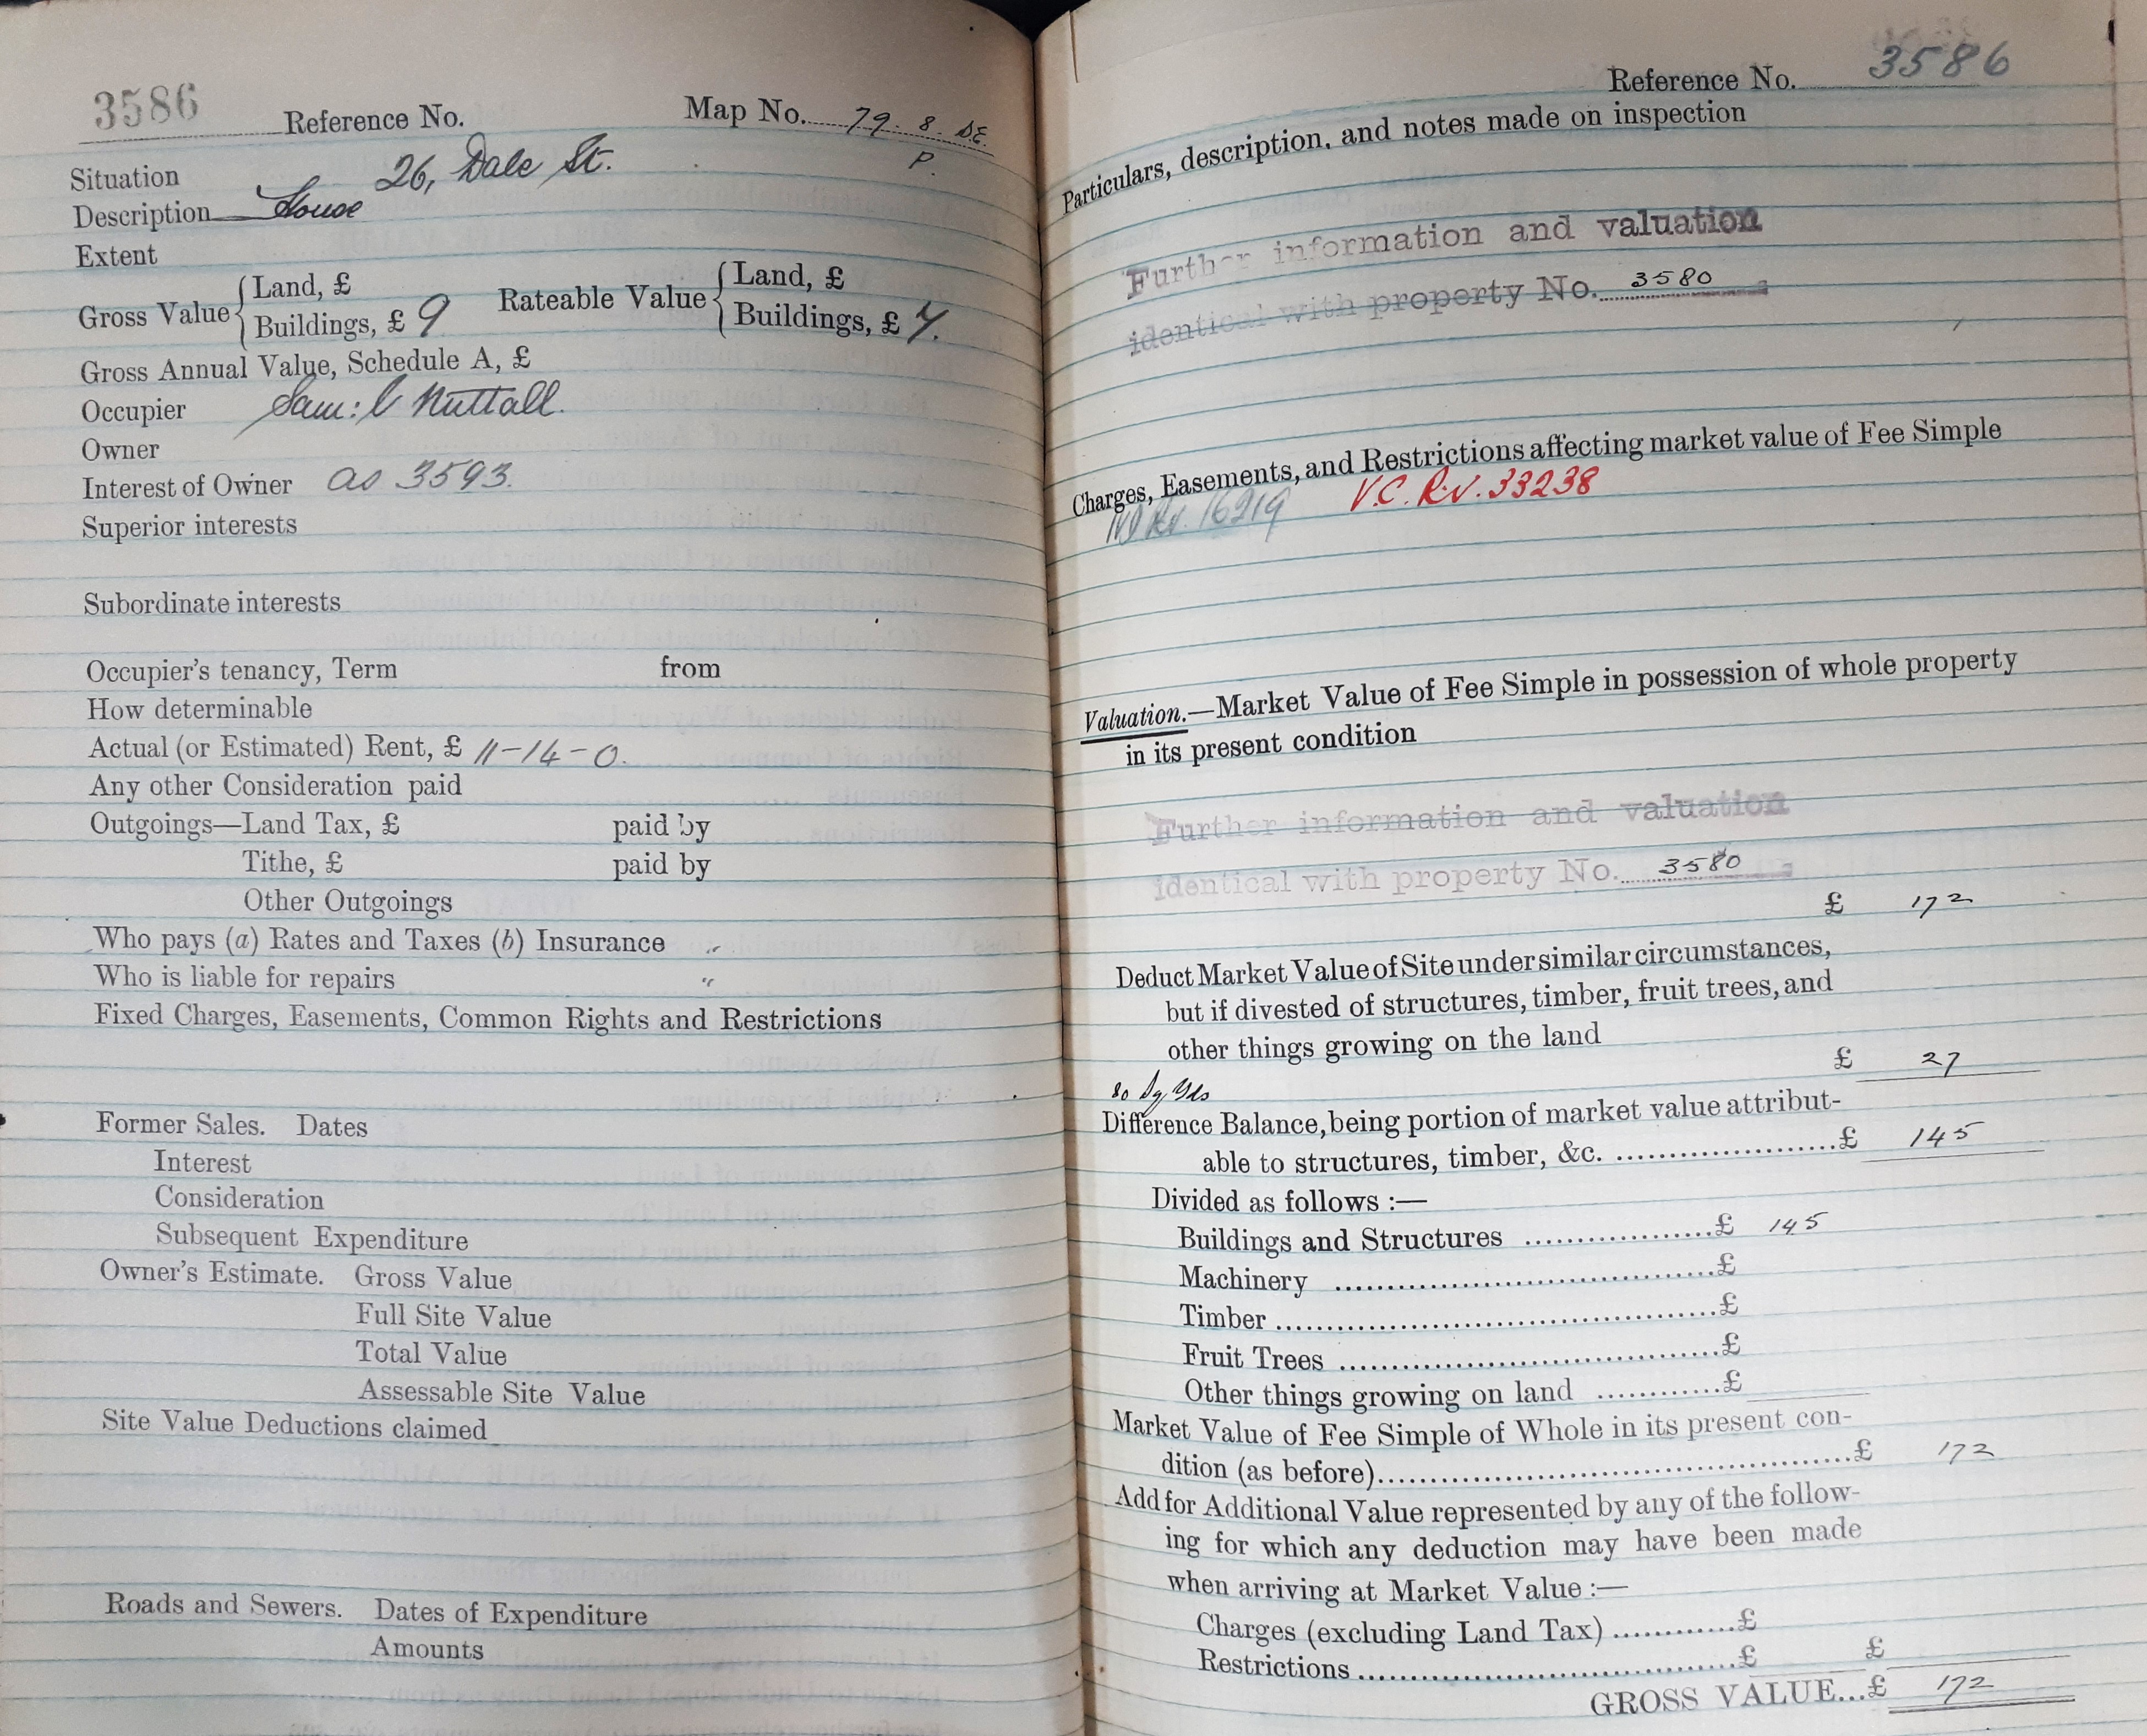 3586 Reference No. Map No. 79. 8. S.E.
P.
Situation 26, Dale St.
Description House
Extent
Gross Value { Land, £ Rateable Value { Land, £
Buildings, £ 9 Buildings, £ 7.
Gross Annual Value, Schedule A, £
Occupier Sam: l Nuttall.
Owner
Interest of Owner as 3593.
Superior interests
Subordinate interests
Occupier's tenancy, Term from
How determinable
Actual (or Estimated) Rent, £ 11-14-0.
Any other Consideration paid
Outgoings—Land Tax, £ paid by
Tithe, £ paid by
Other Outgoings
Who pays (a) Rates and Taxes (b) Insurance "
Who is liable for repairs "
Fixed Charges, Easements, Common Rights and Restrictions
Former Sales. Dates
Interest
Consideration
Subsequent Expenditure
Owner's Estimate. Gross Value
Full Site Value
Total Value
Assessable Site Value
Site Value Deductions claimed
Roads and Sewers. Dates of Expenditure
Amounts
Reference No. 3586
Particulars, description, and notes made on inspection
Further information and valuation
identical with property No. 3580
Charges, Easements, and Restrictions affecting market value of Fee Simple
Rv. 16219 V.C. Rv. 33238
Valuation.—Market Value of Fee Simple in possession of whole property
in its present condition
Further information and valuation
identical with property No. 3580
£ 172
Deduct Market Value of Site under similar circumstances,
but if divested of structures, timber, fruit trees, and
other things growing on the land
£ 27
80 Sq Yds
Difference Balance, being portion of market value attribut-
able to structures, timber, &c. £ 145
Divided as follows :—
Buildings and Structures £ 145
Machinery £
Timber £
Fruit Trees £
Other things growing on land £
Market Value of Fee Simple of Whole in its present con-
dition (as before) £ 172
Add for Additional Value represented by any of the follow-
ing for which any deduction may have been made
when arriving at Market Value :—
Charges (excluding Land Tax) £
Restrictions £ £
GROSS VALUE...£ 172